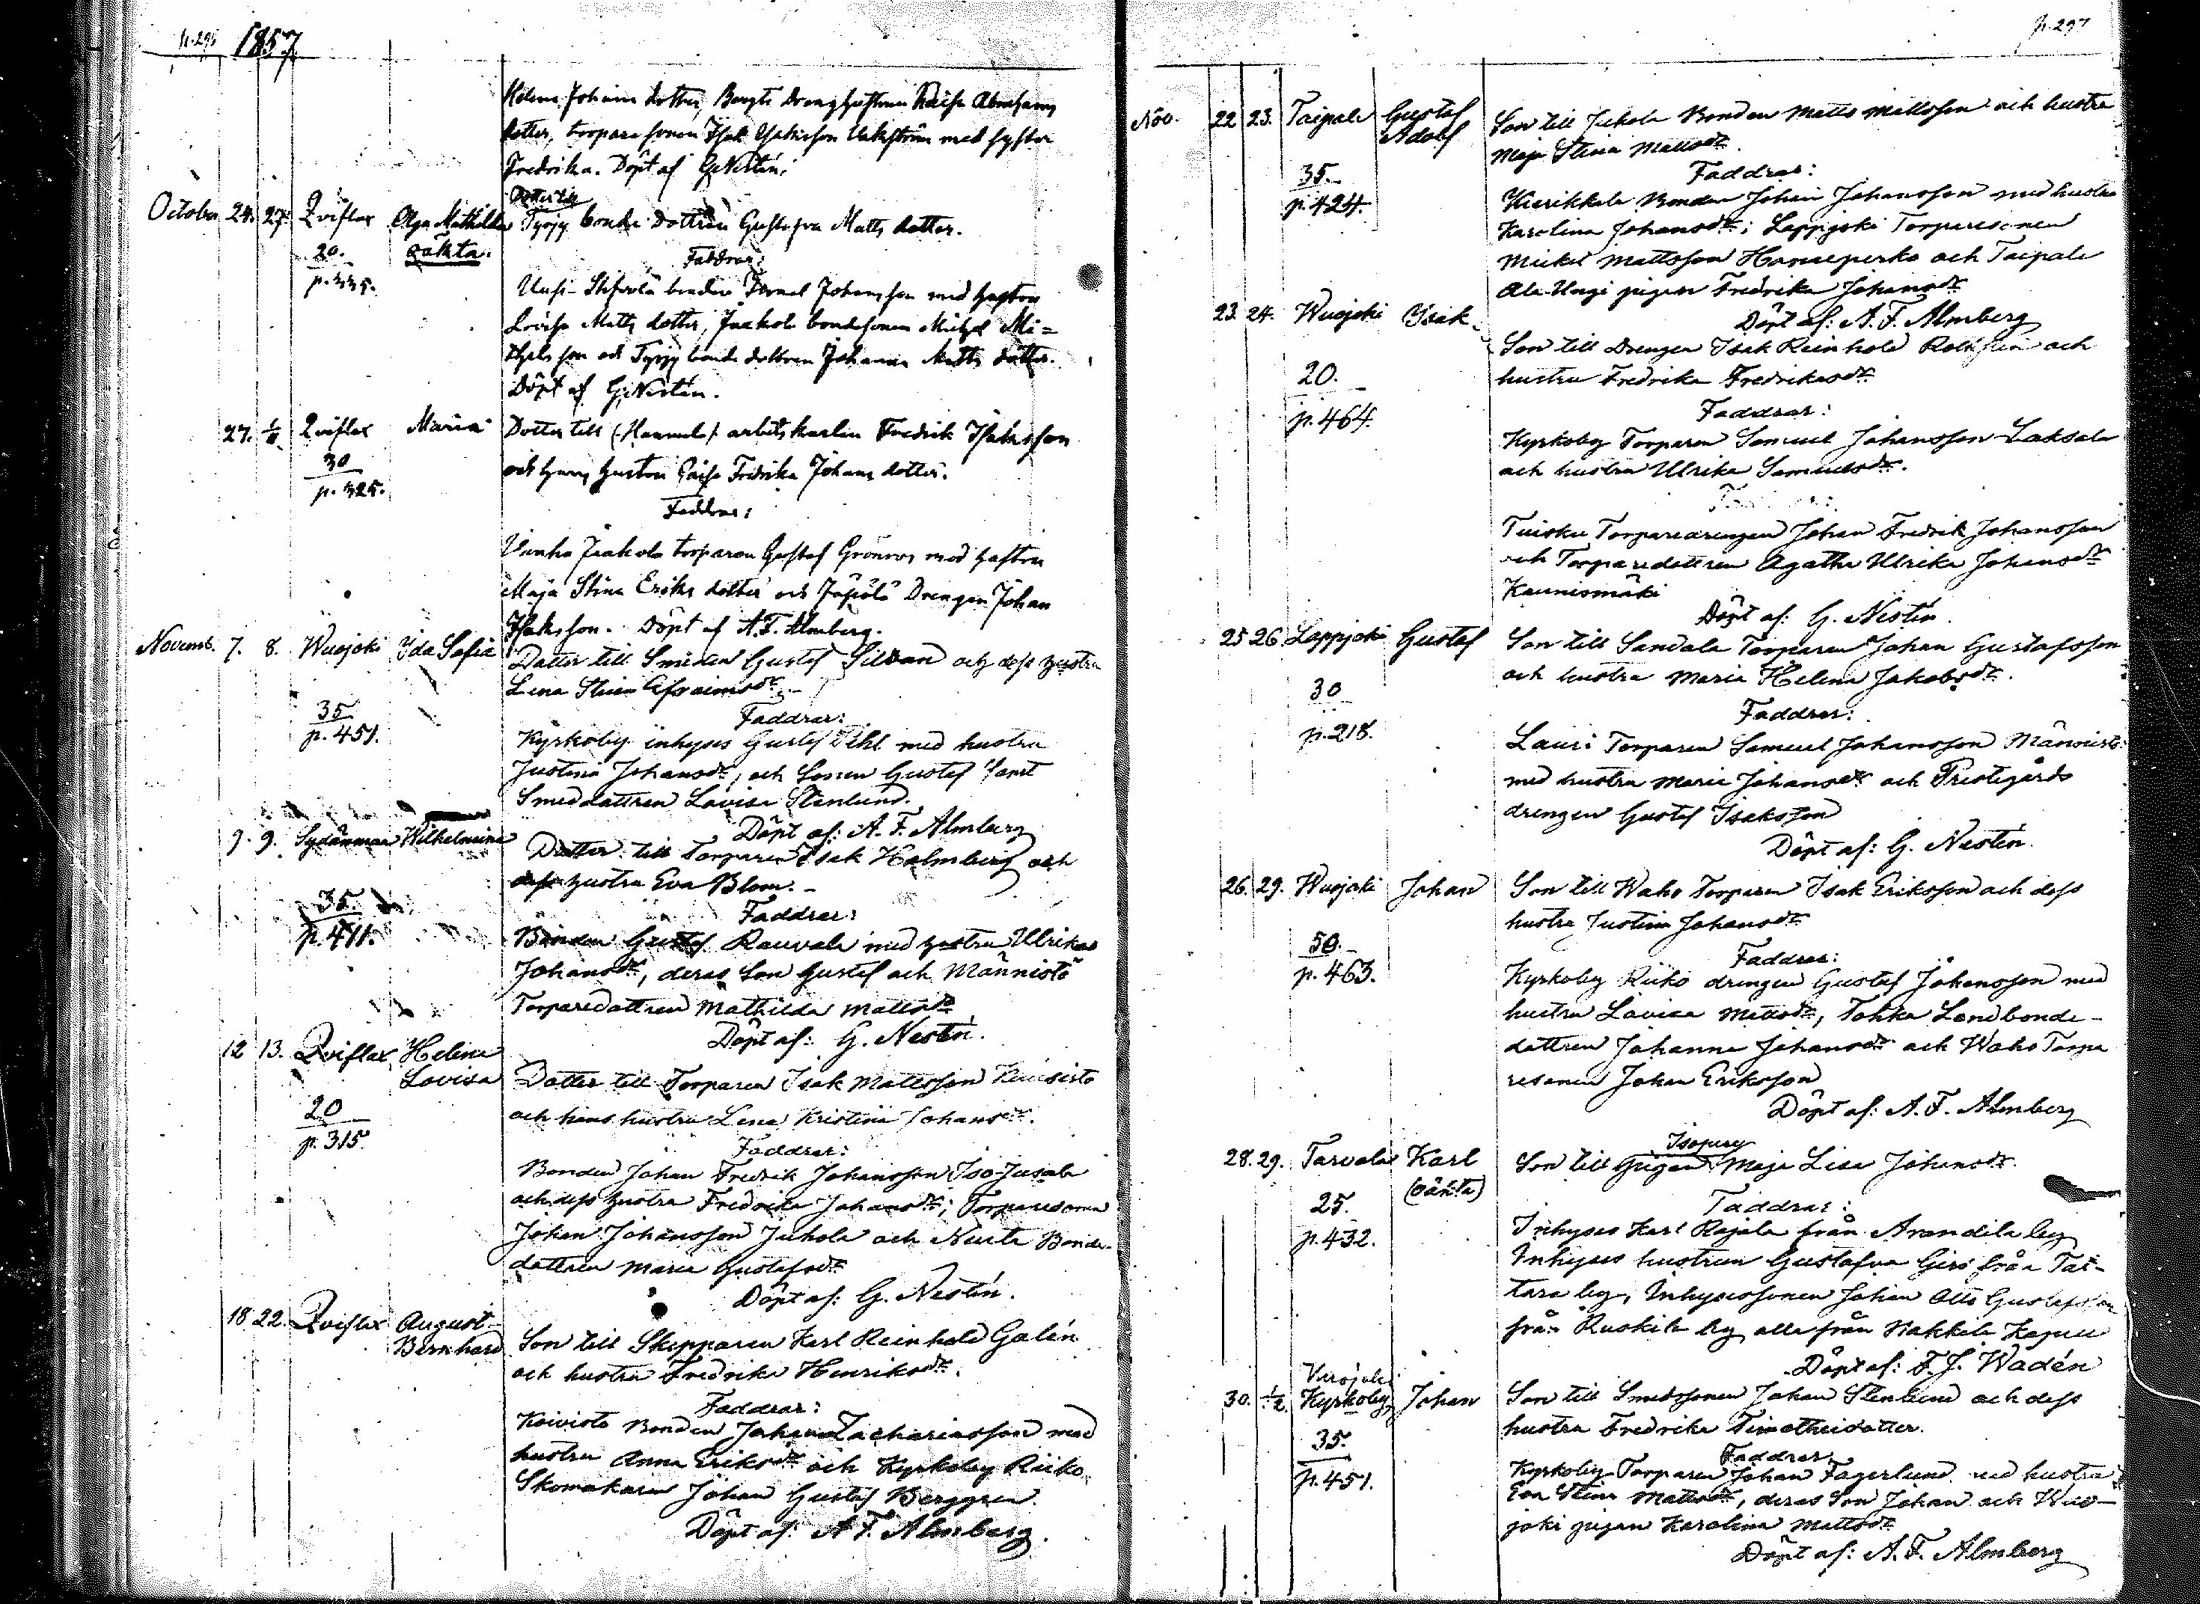 p. 295 1857
Helena Johans dotter, Bergts Dreng hustrun Caisa Abrahams
dotter, torpare sonen Isak Isaksson med syster
Fredrika. Döpt af G. Nestén.
October 24. 27. Qviflax Olga Mathilda Dotter till
Tyrjy bonde Dottren Gustafva Matts dotter.
20. oäkta. Faddrar:
p. 335.
bonden Israel Johansson med hustru
Lovisa Matts dotter, Jaakola bondesonen Michel Mi=
chelsson och Tyrjy bonde dottren Johanna Matts dotter.
Döpt af G. Nestén.
27. 1/11 Qviflax Maria Dotter till (Hannula) arbetskarlen Fredrik Isaksson
30 och hans hustru Caisa Fredrika Johans dotter.
p. 325.
Faddrar:
Vanha Jaakola torparen Gustaf Grönroos med hustru
Maja Stina Eriks dotter och Drengen Johan
Isaksson. Döpt af A. F. Almberg.
Novemb. 7. 8. Wuojoki Ida Sofia Dotter till Smeden Gustaf Silvan och dess hustru
Lena Stina Efraimsdr.
35 Faddrar:
p. 451. Kyrkoby inhyses Gustaf med hustru
Justina Johansdr, och Sonen Gustaf samt
Smeddottren Lovisa Stenlund.
Döpt af: A. F. Almberg
9. 9. Sydänmaa Wilhelmina Dotter till Torparen Isak Holmberg och
dess hustru Eva Blom.
35. Faddrar:
p. 411. Bonden Gustaf Rauvala med hustru Ulrika
Johansdr, deras Son Gustaf och Männistö
Torparedottren Mathilda Mattsdr
Döpt af: G. Nestén.
12 13. Qviflax Helena
Lovisa Dotter till Torparen Isak Mattsson
20 och hans hustru Lena Kristina Johansdr.
p. 315. Faddrar:
Bonden Johan Fredrik Johansson Iso-Jusala
och dess hustru Fredrika Johansdr; Torparesonen
Johan Johansson Juhola och Bonde-
dottren Maria Gustafsdr
Döpt af: G. Nestén.
18 22. Qviflax August
Bernhard Son till Skepparen Karl Reinhold Galén
och hustru Fredrika Henriksdr.
Faddrar:
Koivisto Bonden Johan Zachariasson med
hustru Anna Eriksdr och Kyrkoby Riiko
Skomakaren Johan Gustaf Berggren
Döpt af: A. F. Almberg.
p. 297
Nov. 22 23. Taipale Gustaf
Adolf Son till Juhola Bonden Matts Mattsson och hustru
Maja Stina Mattsdr.
35. Faddrar:
p. 424. Bonden Johan Johansson med hustru
Karolina Johansdr; Lappjoki Torparesonen
Mickel Mattsson och Taipale
Ala-Uusi pigan Fredrika Johansdr
Döpt af: A. F. Almberg
23. 24. Wuojoki Isak. Son till Drengen Isak Reinhold och
20. hustru Fredrika Fredriksdr.
p. 464. Faddrar:
Kyrkoby Torparen Samuel Johansson Laksala
och hustru Ulrika Samuelsdr.
Tuisku Torparedrengen Johan Fredrik Johansson
och Torparedottren Agatha Ulrika Johansdr
Kaunismäki
Döpt af: G. Nestén.
25 26 Lappjoki Gustaf Son till Sandala Torparen Johan Gustafsson
och hustru Maria Helena Jakobsdr.
30 Faddrar:
p. 218. Lauri Torparen Samuel Johansson
med hustru Maria Johansdr och Prestgårds
drengen Gustaf Isaksson
Döpt af: G. Nestén.
26. 29. Wuojoki Johan Son till Waho Torparen Isak Eriksson och dess
hustru Justina Johansdr
50. Faddrar:
p. 463. Kyrkoby Riiko drengen Gustaf Johansson med
hustru Lovisa Mattsdr, Tohka Landbonde-
dottren Johanna Johansdr och Waho Torpa
resonen Johan Eriksson
Döpt af: A. F. Almberg
28. 29. Tarvola Karl
(oäkta) Son till Isopery pigan Maja Lisa Johansdr.
25. Faddrar:
p. 432. Inhyses Karl Rajala från Arandila by
Inhyses hustrun Gustafva från Tat-
tara by, Inhysessonen Johan Otto Gustafsson
från Ruskila by alla från Nakkila Kapell
Döpt af: F. J. Wadén
30. 1/12 Vuojoki
Kyrkoby, Johan Son till Smedssonen Johan Stenlund och dess
hustru Fredrika Timotheidotter.
35. Faddrar
p. 451. Kyrkoby Torparen Johan Fagerlund med hustru
Eva Stina Mattsdr, deras Son Johan och Wuo-
joki pigan Karolina Mattsdr
Döpt af: A. F. Almberg